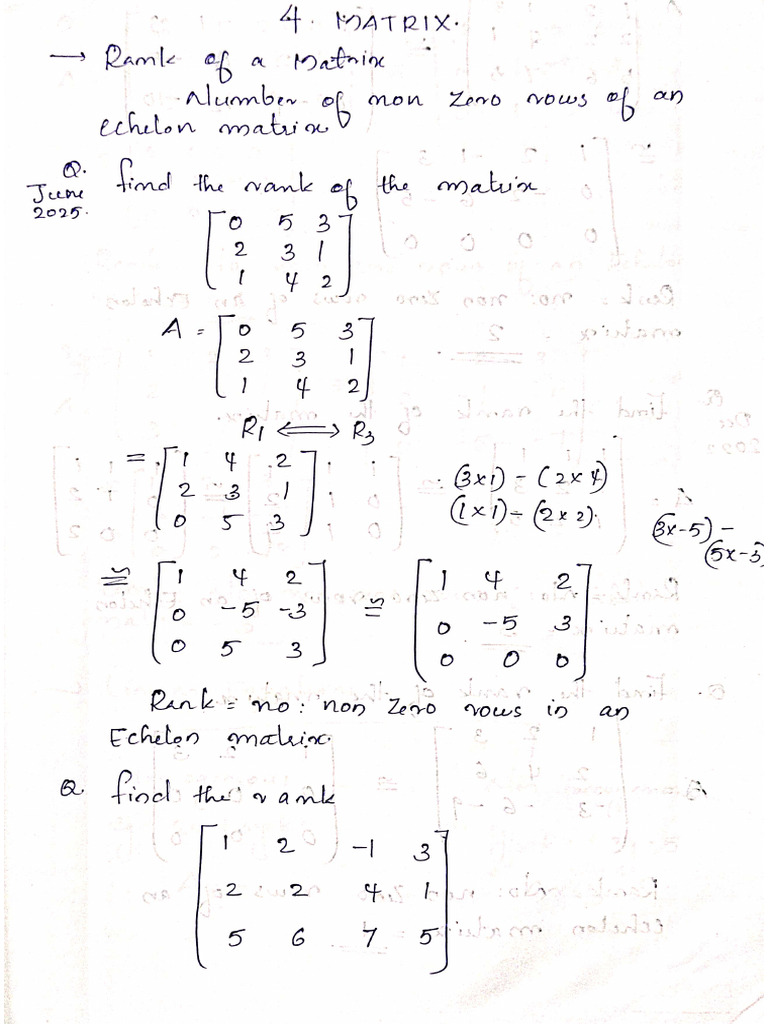 4. MATRIX.
→ Rank of a Matrix
Number of non zero rows of an
echelon matrix
Q. find the rank of the matrix
June
2025.
[0 5 3
2 3 1
1 4 2]
A = [0 5 3
2 3 1
1 4 2]
R1 ⟺ R3
= [1 4 2
2 3 1
0 5 3]
(3x1) - (2x4)
(1x1) - (2x2).
(3x-5) -
(5x-3
≅ [1 4 2
0 -5 -3
0 5 3]
≅ [1 4 2
0 -5 3
0 0 0]
Rank = no: non zero rows in an
Echelon matrix.
Q. find the rank
[1 2 -1 3
2 2 4 1
5 6 7 5]